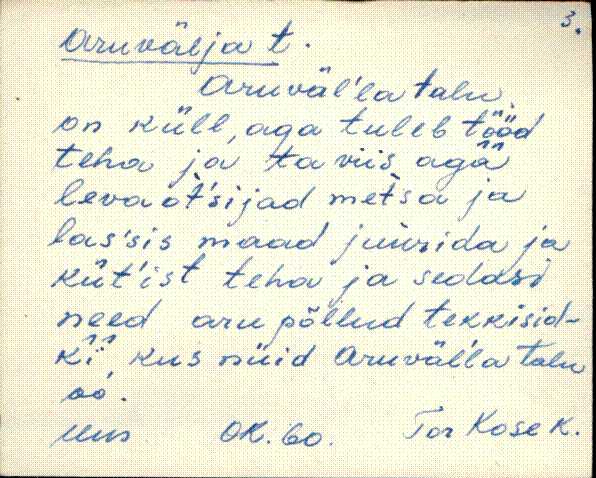 3.
Aruvälja t.
Aruväl'la talu
on küll, aga tuleb tööd
teha ja ta viis agâ
leva ot'sijad met̀sa ja
las'sis maad juurida ja
küt'ist teha ja sedasi
need aru põllud tekkisid-
kî̂, kus nüid Aruväl'la talu
oo.
Uus OK. 60. Tor Kose K.